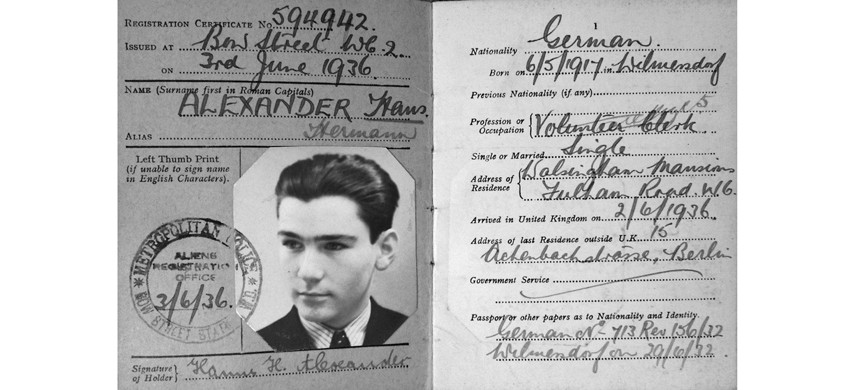 REGISTRATION CERTIFICATE No. 594942.
ISSUED AT Bow Street WC.2.
ON 3rd June 1936.
NAME (Surname first in Roman Capitals)
ALEXANDER Hans.
Hermann
ALIAS
Left Thumb Print
(if unable to sign name
in English Characters).
METROPOLITAN POLICE
ALIENS
REGISTRATION
OFFICE
3/6/36.
BOW STREET
Signature
of Holder
Hanns H. Alexander
1
Nationality German.
Born on 6/5/1917 in Wilmersdorf
Previous Nationality (if any)
Profession or
Occupation
Volunteer Clerk
Single or Married Single
Address of
Residence
Walsingham Mansions
Fulham Road. W6.
Arrived in United Kingdom on 2/6/1936.
Address of last Residence outside U.K. 15
Achenbachstrasse, Berlin
Government Service
Passport or other papers as to Nationality and Identity.
German No 713 Rev 156/32
Wilmersdorf on